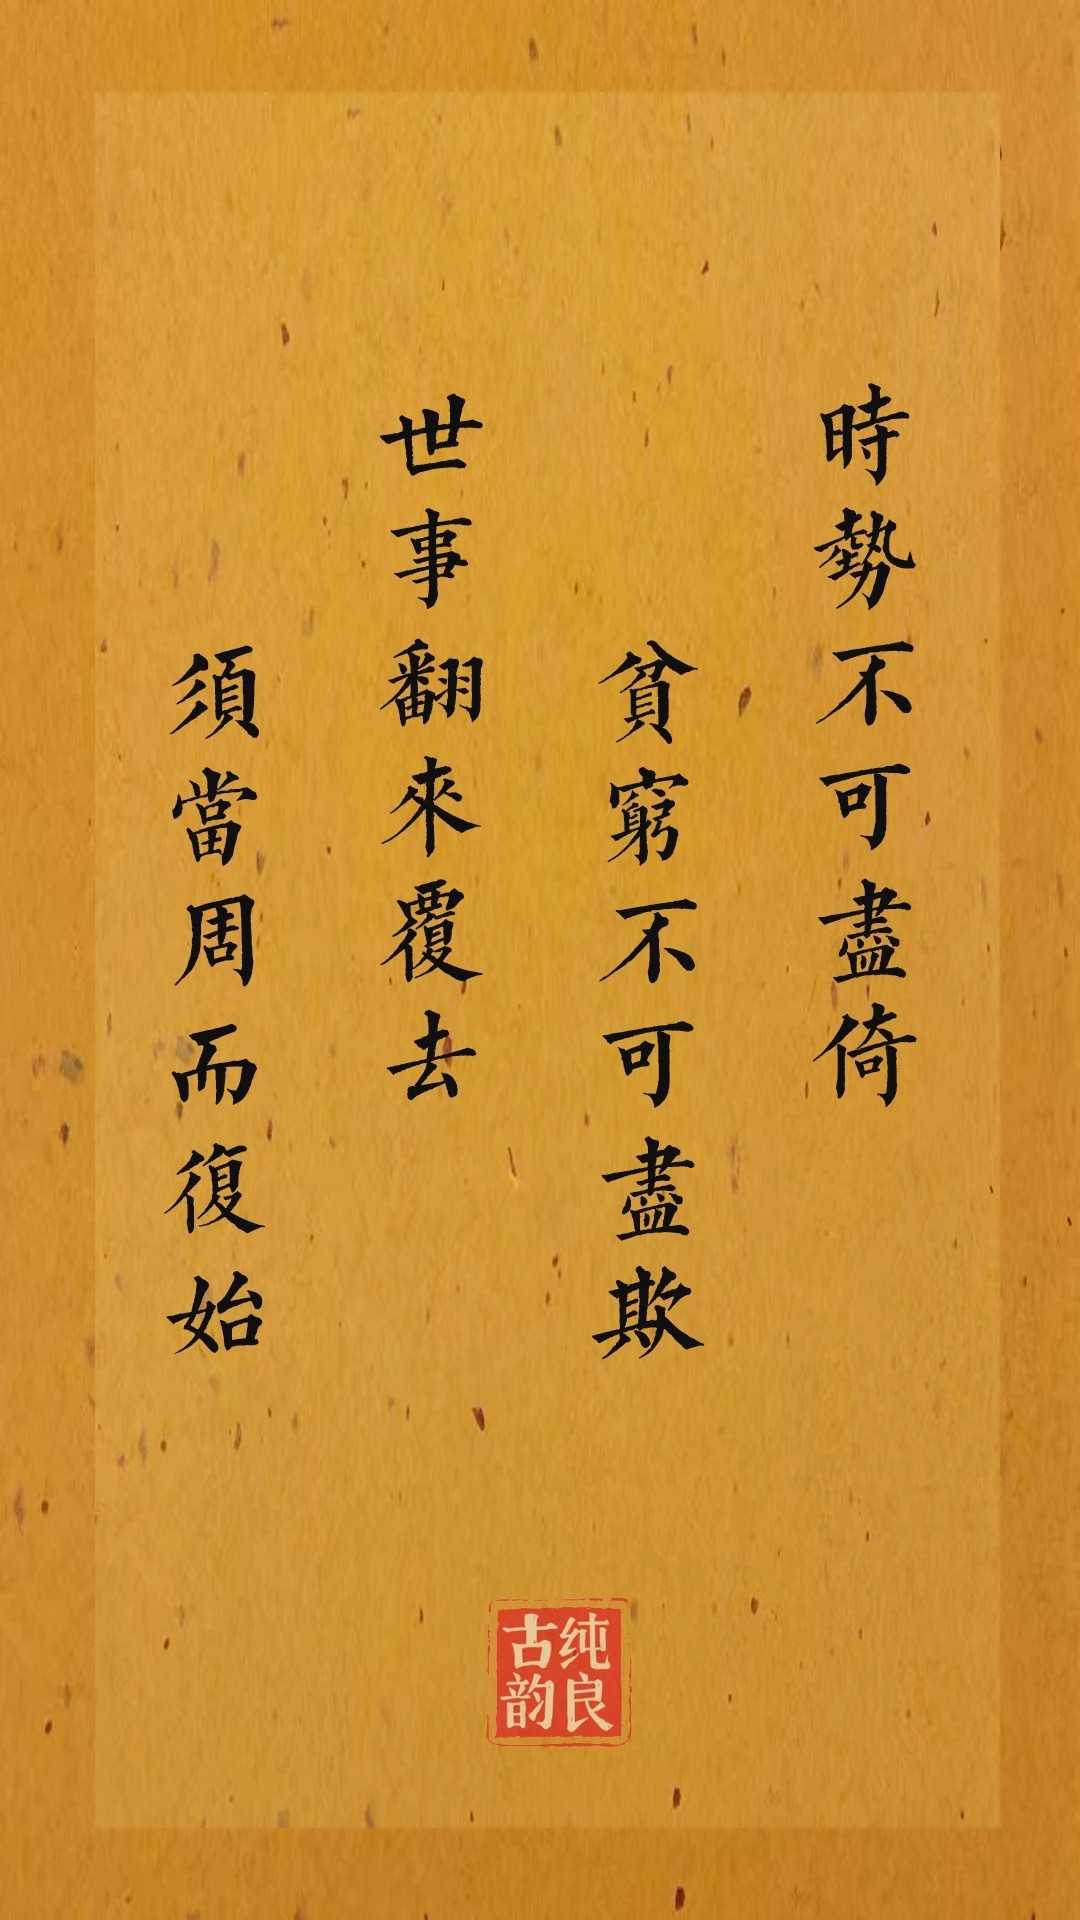 時勢不可盡倚
貧窮不可盡欺
世事翻來覆去
須當周而復始
纯良
古韵